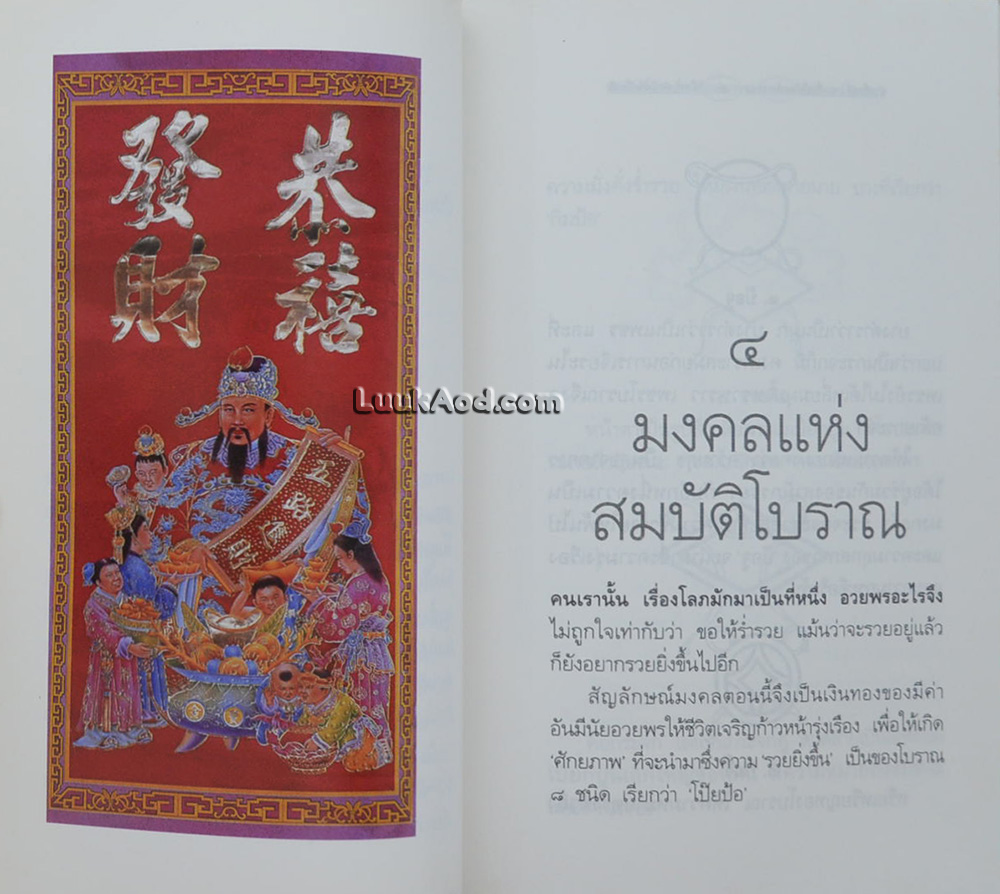 恭禧
發財
五路
LuukAod.com
๔
มงคลแห่ง
สมบัติโบราณ
คนเรานั้น เรื่องโลภมักมาเป็นที่หนึ่ง อวยพรอะไรจึง
ไม่ถูกใจเท่ากับว่า ขอให้ร่ำรวย แม้นว่าจะรวยอยู่แล้ว
ก็ยังอยากรวยยิ่งขึ้นไปอีก
สัญลักษณ์มงคลตอนนี้จึงเป็นเงินทองของมีค่า
อันมีนัยอวยพรให้ชีวิตเจริญก้าวหน้ารุ่งเรือง เพื่อให้เกิด
'ศักยภาพ' ที่จะนำมาซึ่งความ 'รวยยิ่งขึ้น' เป็นของโบราณ
๘ ชนิด เรียกว่า 'โป๊ยป้อ'